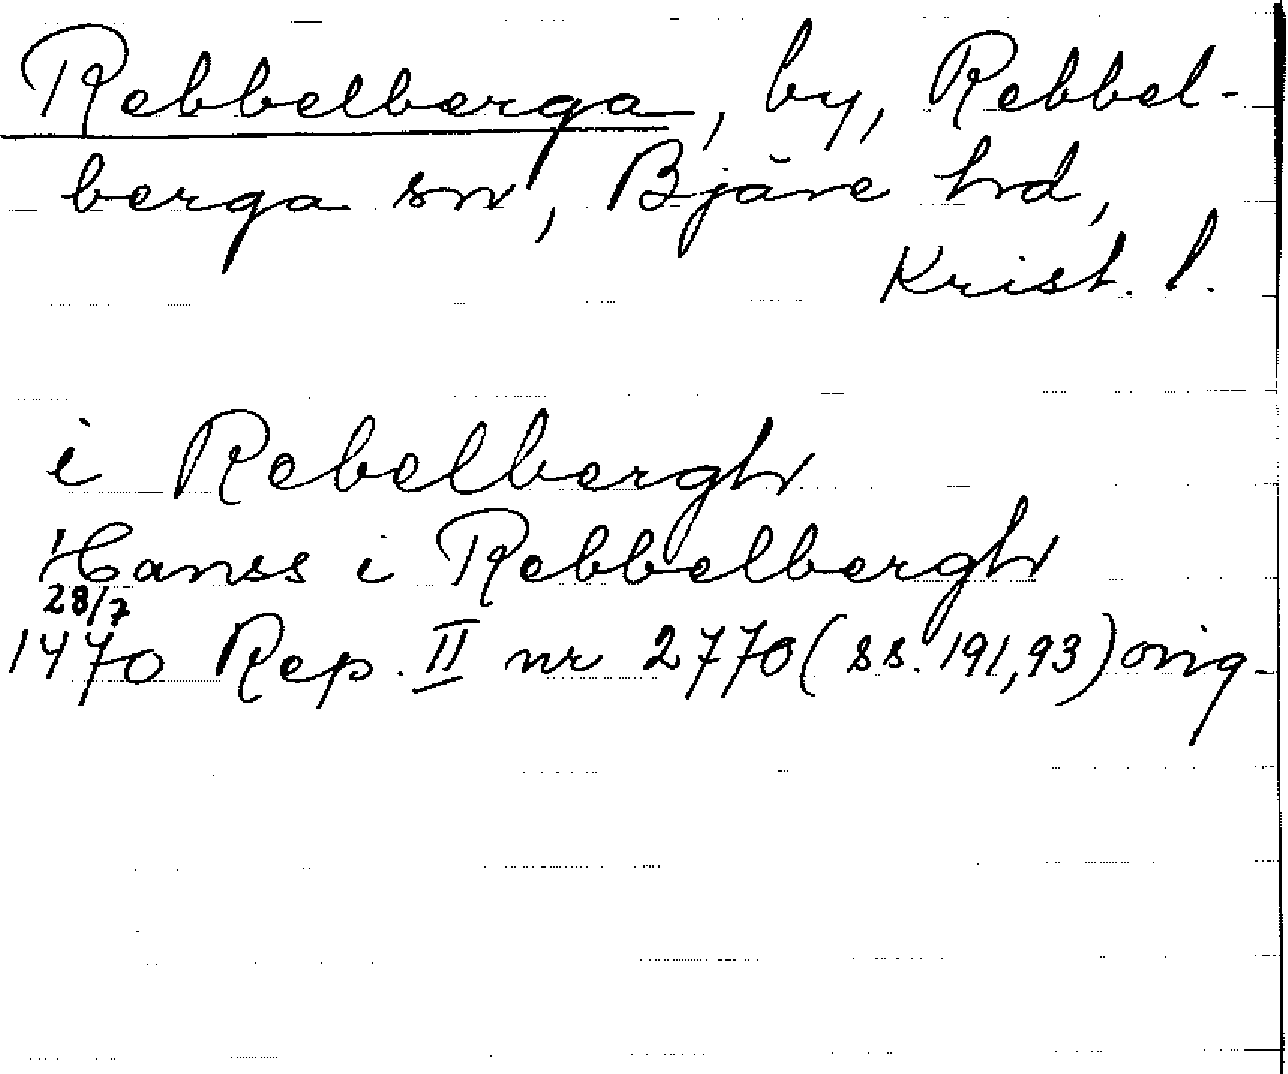 Rebbelberga, by, Rebbel-
berga sn, Bjäre hd,
Krist. l.
i Rebelbergh
Hanss i Rebbelbergh
28/7
1470 Rep. II nr 2770 (ss. 191, 93) orig.